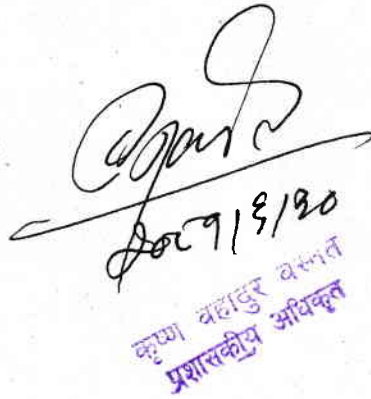 २०८१।६।२०
कृष्ण बहादुर बस्नेत
प्रशासकीय अधिकृत